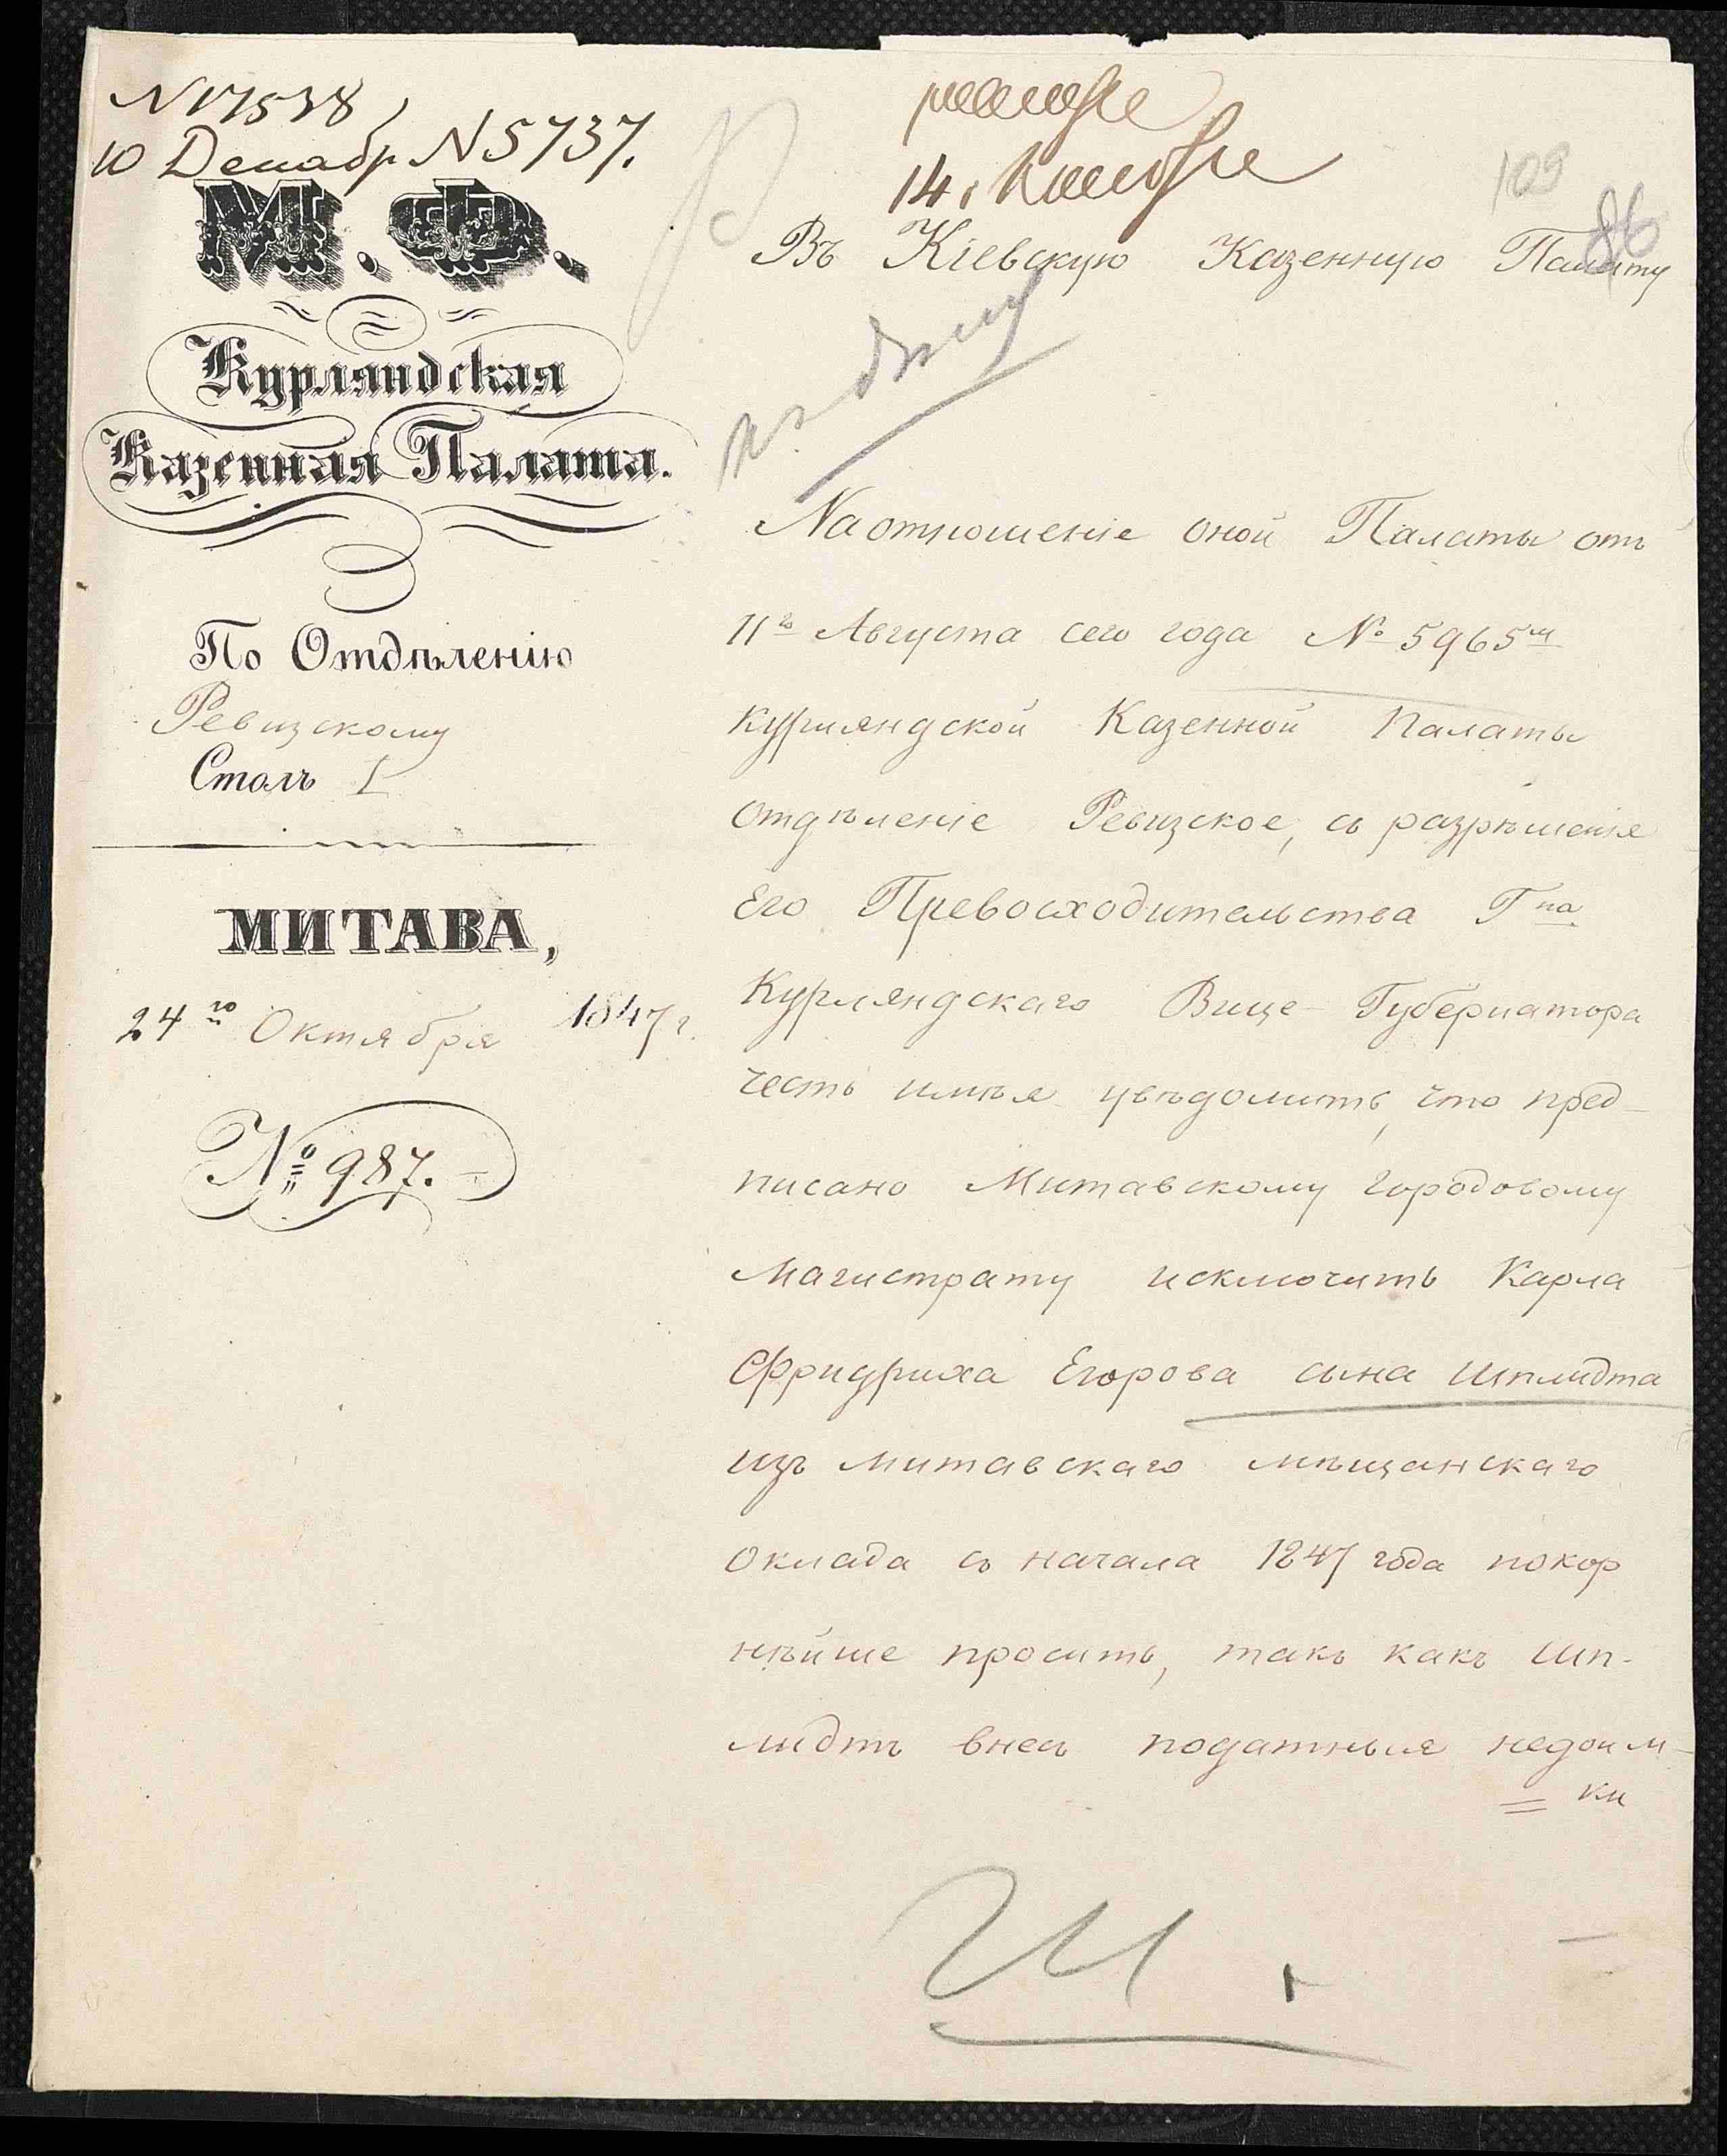 N 17538
10 Декабр N 5737.
М. Ф.
Курляндская
Казенная Палата.
По Отдѣленію
Ревизскому
Столъ I
МИТАВА,
24го Октября 1847 г.
№ 987.
14. Ноября
109
86
Въ Кіевскую Казенную Палату
На отношеніе оной Палаты отъ
11го Августа сего года № 5965м
Курляндской Казенной Палаты
отдѣленіе Ревизское, съ разрѣшенія
Его Превосходительства Гна
Курляндскаго Вице-Губернатора
честь имѣя увѣдомить, что пред-
писано Митавскому городовому
Магистрату исключить Карла
Фридриха Егорова сына Шплидта
изъ митавскаго мѣщанскаго
оклада съ начала 1847 года покор
нѣйше просить, такъ какъ Шп-
лидтъ внесъ податныя недоим-
ки
Ш.